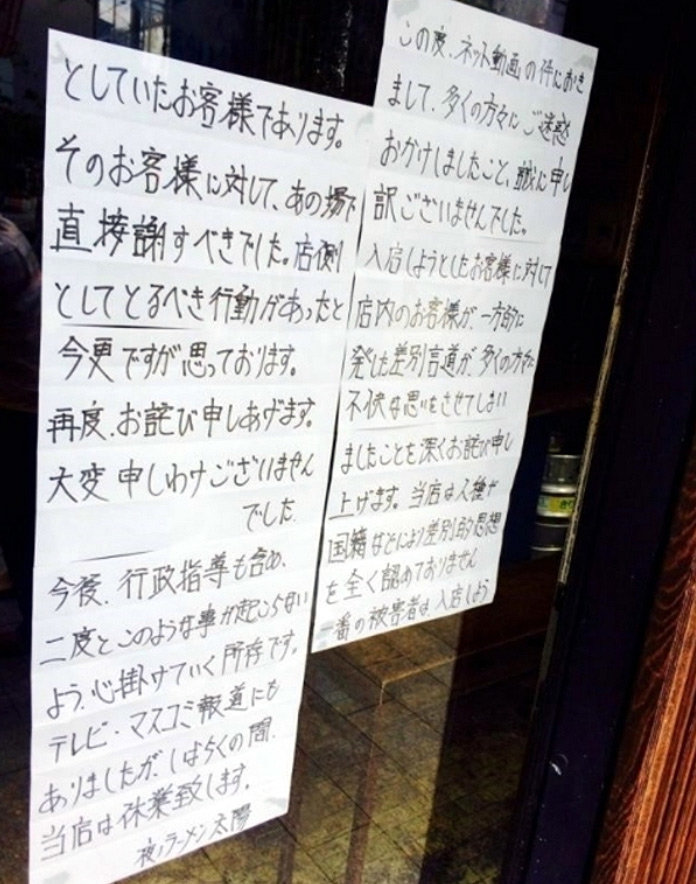 この度、ネット動画の件におき
まして、多くの方々にご迷惑
おかけしましたこと、誠に申し
訳ございませんでした。
入店しようとしたお客様に対して
店内のお客様が、一方的に
発した差別言道が、多くの方々に
不快な思いをさせてしまい
ましたことを深くお詫び申し
上げます。当店は人種や
国籍などにより差別的思想
を全く認めておりません
一番の被害者は、入店しよう
としていたお客様であります。
そのお客様に対して、あの場で
直接謝すべきでした。店側
としてとるべき行動があったと
今更ですが思っております。
再度、お詫び申しあげます。
大変申しわけございません
でした。
今後、行政指導も含め、
二度とこのような事が起こらない
よう、心掛けていく所存です。
テレビ・マスコミ報道にも
ありましたが、しばらくの間、
当店は休業致します。
夜ノラーメン太陽